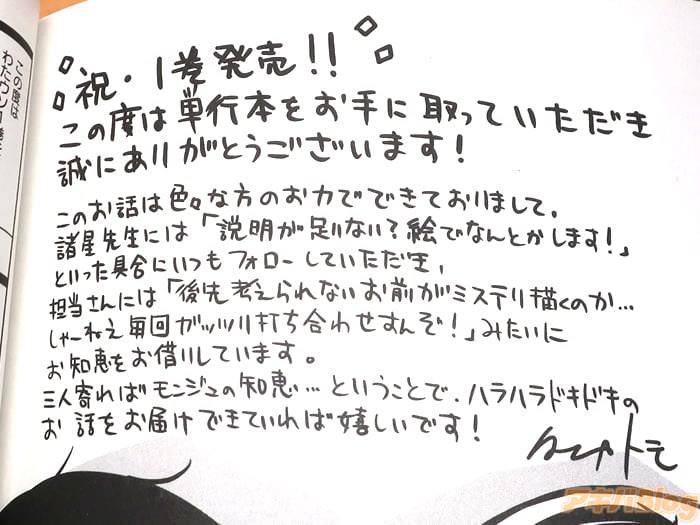 祝・1巻発売!!
この度は単行本をお手に取っていただき
誠にありがとうございます!
このお話は色々な方のお力でできておりまして。
諸星先生には「説明が足りない?絵でなんとかします!」
といった具合にいつもフォローしていただき、
担当さんには「後先考えられないお前がミステリ描くのか…
しゃーねえ毎回ガッツリ打ち合わせすんぞ!」みたいに
お知恵をお借りしています。
三人寄ればモンジュの知恵…ということで、ハラハラドキドキの
お話をお届けできていれば嬉しいです!
この度は
アキバBlog